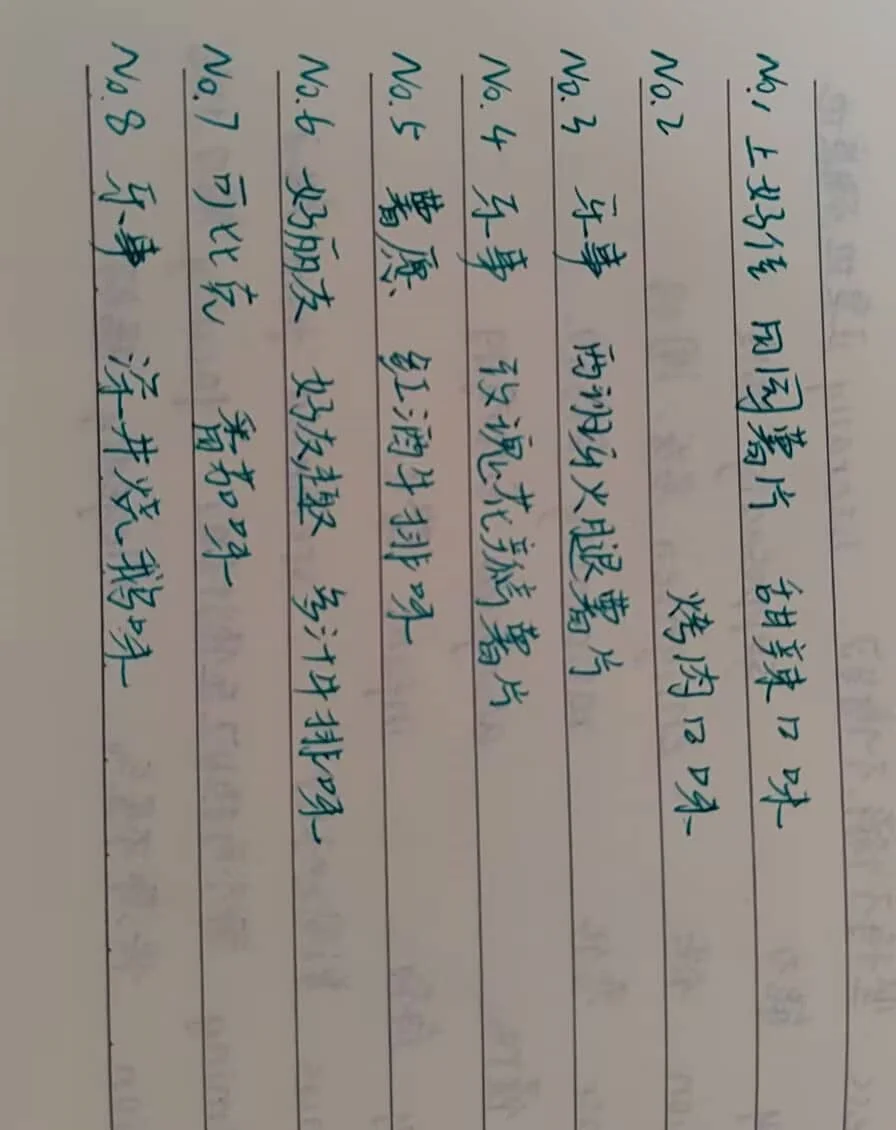 No.1 上好佳 田园薯片 甜辣口味
No.2 烤肉口味
No.3 乐事 西班牙火腿薯片
No.4 乐事 玫瑰花养薯片
No.5 薯愿 红酒牛排味
No.6 好丽友 好友趣 多汁牛排味
No.7 可比克 番茄味
No.8 乐事 深井烧鹅味